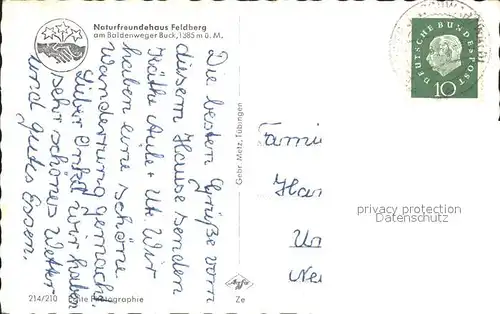 Naturfreundehaus Feldberg
am Baldenweger Buck, 1385 m ü. M.
Die besten Grüße vom
diesem Hause senden
Käthe Adi + Ute. Wir
haben eine schöne
Wanderung gemacht.
Lieber Onkel wir haben
sehr schönes Wetter
und gutes Essen.
Gebr. Metz, Tübingen
DEUTSCHE BUNDESPOST
10
Famil
Han
Un
Ne
privacy protection
Datenschutz
214/210
Echte Photographie
Agfa
Ze